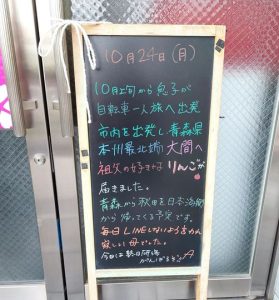 10月24日(月)
10月上旬から息子が
自転車一人旅へ出発
市内を出発し青森県
本州最北端 大間へ
祖父の好きなりんごが
届きました。
青森から秋田を日本海側
から帰ってくる予定です。
毎日LINEしないようきめん
寂しい母でした。
今日は終日
がんばるぞ